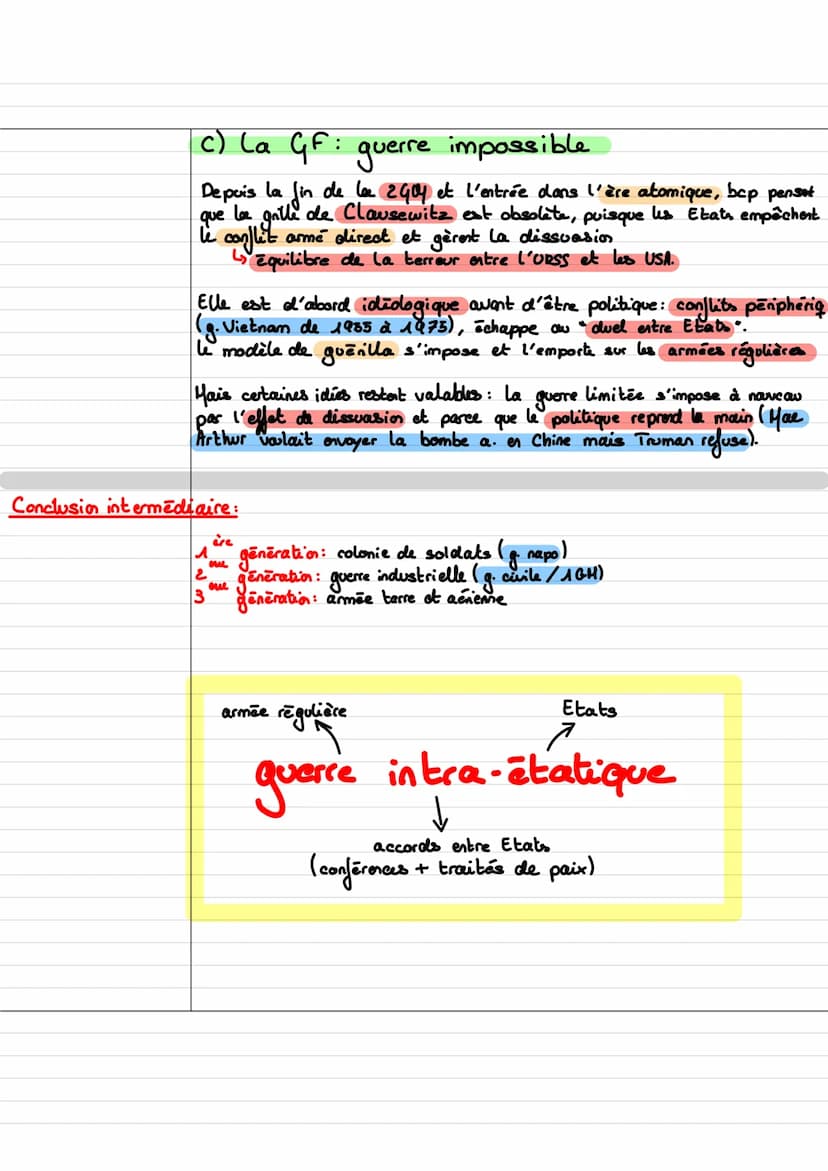 c) La GF : guerre impossible
Depuis la fin de la 2GM et l'entrée dans l'ère atomique, bcp pensent
que la grille de Clausewitz est obsolète, puisque les Etats empêchent
le conflit armé direct et gèrent la dissuasion
↳ équilibre de la terreur entre l'URSS et les USA.
Elle est d'abord idéologique avant d'être politique : conflits périphériq
(g. Vietnam de 1955 à 1975), échappe au "duel entre Etats".
Le modèle de guérilla s'impose et l'emporte sur les armées régulières
Mais certaines idées restent valables : la guerre limitée s'impose à nouveau
par l'effet de dissuasion et parce que le politique reprend la main (Mac
Arthur voulait envoyer la bombe a. en Chine mais Truman refuse).
Conclusion intermédiaire :
1ère génération : colonie de soldats (g. napo)
2ème génération : guerre industrielle (g. civile / 1GM)
3ème génération : armée terre et aérienne
armée régulière Etats
guerre intra-étatique
accords entre Etats
(conférences + traités de paix)